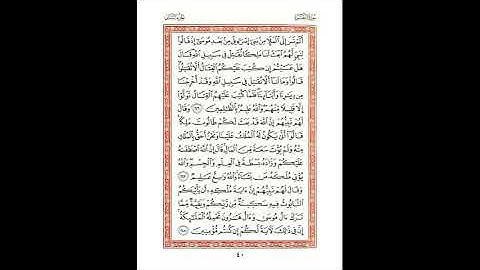 سورة البقرة الجزء الثاني
أَلَمْ تَرَ إِلَى ٱلْمَلَإِ مِنۢ بَنِىٓ إِسْرَٰٓءِيلَ مِنۢ بَعْدِ مُوسَىٰٓ إِذْ قَالُوا۟
لِنَبِىٍّ لَّهُمُ ٱبْعَثْ لَنَا مَلِكًا نُّقَٰتِلْ فِى سَبِيلِ ٱللَّهِ قَالَ
هَلْ عَسَيْتُمْ إِن كُتِبَ عَلَيْكُمُ ٱلْقِتَالُ أَلَّا تُقَٰتِلُوا۟
قَالُوا۟ وَمَا لَنَآ أَلَّا نُقَٰتِلَ فِى سَبِيلِ ٱللَّهِ وَقَدْ أُخْرِجْنَا
مِن دِيَٰرِنَا وَأَبْنَآئِنَا فَلَمَّا كُتِبَ عَلَيْهِمُ ٱلْقِتَالُ تَوَلَّوْا۟
إِلَّا قَلِيلًا مِّنْهُمْ وَٱللَّهُ عَلِيمٌۢ بِٱلظَّٰلِمِينَ ٢٤٦ وَقَالَ
لَهُمْ نَبِيُّهُمْ إِنَّ ٱللَّهَ قَدْ بَعَثَ لَكُمْ طَالُوتَ مَلِكًا
قَالُوٓا۟ أَنَّىٰ يَكُونُ لَهُ ٱلْمُلْكُ عَلَيْنَا وَنَحْنُ أَحَقُّ بِٱلْمُلْكِ
مِنْهُ وَلَمْ يُؤْتَ سَعَةً مِّنَ ٱلْمَالِ قَالَ إِنَّ ٱللَّهَ ٱصْطَفَىٰهُ
عَلَيْكُمْ وَزَادَهُۥ بَسْطَةً فِى ٱلْعِلْمِ وَٱلْجِسْمِ وَٱللَّهُ
يُؤْتِى مُلْكَهُۥ مَن يَشَآءُ وَٱللَّهُ وَٰسِعٌ عَلِيمٌ ٢٤٧
وَقَالَ لَهُمْ نَبِيُّهُمْ إِنَّ ءَايَةَ مُلْكِهِۦٓ أَن يَأْتِيَكُمُ
ٱلتَّابُوتُ فِيهِ سَكِينَةٌ مِّن رَّبِّكُمْ وَبَقِيَّةٌ مِّمَّا
تَرَكَ ءَالُ مُوسَىٰ وَءَالُ هَٰرُونَ تَحْمِلُهُ ٱلْمَلَٰٓئِكَةُ
إِنَّ فِى ذَٰلِكَ لَءَايَةً لَّكُمْ إِن كُنتُم مُّؤْمِنِينَ ٢٤٨
٤٠